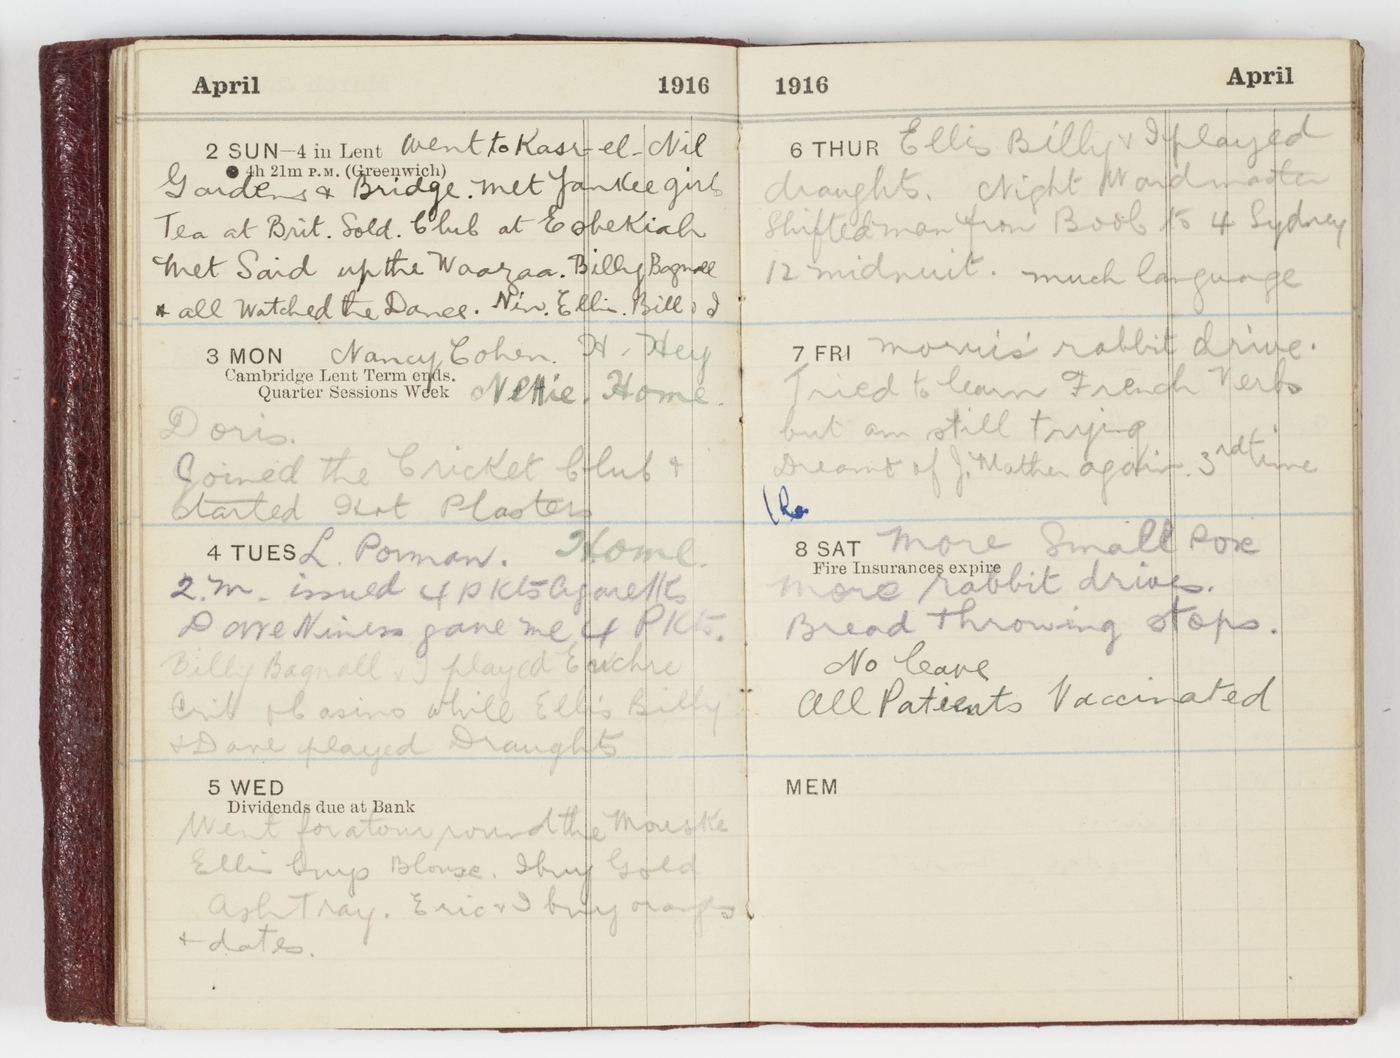 April 1916
2 SUN—4 in Lent Went to Kasr-el-Nil
● 4h 21m P.M. (Greenwich)
Gardens & Bridge. Met Yankee girls
Tea at Brit. Sold. Club at Esbekiah
Met Said up the Waazaa. Billy Bagnall
& all Watched the Dance. Nin. Ellis. Bill & I
3 MON Nancy Cohen. H. Hey
Cambridge Lent Term ends.
Quarter Sessions Week Nettie. Home.
Doris.
Joined the Cricket Club &
Started Hot Plasters
4 TUES L. Porman. Home.
2.M. issued 4 Pkts Cigaretts
Dave Niness gave me 4 Pkts.
Billy Bagnall & I played Euchre
Crib & Casino while Ellis Billy
& Dave played Draughts
5 WED
Dividends due at Bank
Went for a tour round the Mouske
Ellis buys Blouse. I buy Gold
Ash Tray. Eric & I buy oranges
& dates.
1916 April
6 THUR Ellis Billy & I played
draughts. Night Wardmaster
Shifted man from Boob to 4 Sydney
12 midnuit. much language
7 FRI Morris' rabbit drive.
Tried to learn French Verbs
but am still trying
Dreamt of J. Mather again. 3rd time
8 SAT More Small Pox
Fire Insurances expire
More rabbit drives.
Bread throwing stops.
No leave
All Patients Vaccinated
MEM